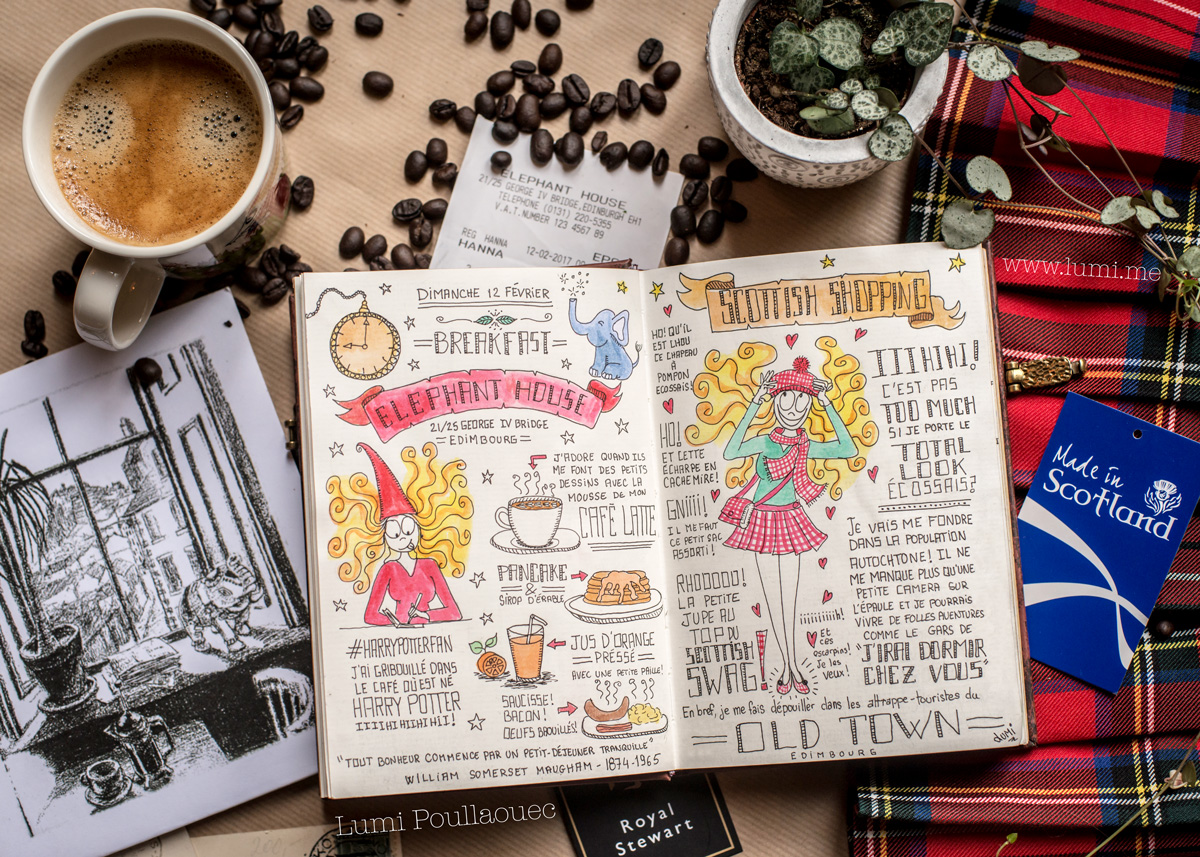 Lumi Poullaouec
www.lumi.me
ELEPHANT HOUSE
21/25 GEORGE IV BRIDGE, EDINBURGH EH1
TELEPHONE (0131) 220-5355
V.A.T. NUMBER 123 4567 89
REG HANNA
HANNA
12-02-2017
DIMANCHE 12 FÉVRIER
BREAKFAST
ELEPHANT HOUSE
21/25 GEORGE IV BRIDGE
EDIMBOURG
J'ADORE QUAND ILS
ME FONT DES PETITS
DESSINS AVEC LA
MOUSSE DE MON
CAFÉ LATTE
PANCAKE
&
SIROP D'ÉRABLE
JUS D'ORANGE
PRESSÉ
AVEC UNE PETITE PAILLE!
SAUCISSE!
BACON!
OEUFS BROUILLÉS!
#HARRYPOTTERFAN
J'AI GRIBOUILLÉ DANS
LE CAFÉ OÙ EST NÉ
HARRY POTTER
IIIIHIHIHIHI!
"TOUT BONHEUR COMMENCE PAR UN PETIT-DÉJEUNER TRANQUILLE"
WILLIAM SOMERSET MAUGHAM - 1874-1965
SCOTTISH SHOPPING
HO! QU'IL
EST CHOU
CE CHAPEAU
À
POMPON
ECOSSAIS!
HO!
ET CETTE
ÉCHARPE EN
CACHEMIRE!
GNIIII!
IL ME FAUT
CE PETIT SAC
ASSORTI!
RHOOOOO!
LA PETITE
JUPE AU
TOP DU
SCOTTISH
SWAG!
iiiiiiiiiih!
Et
ces
escarpins!
Je les
veux!
IIIHIHI!
C'EST PAS
TOO MUCH
SI JE PORTE LE
TOTAL
LOOK
ÉCOSSAIS?
JE VAIS ME FONDRE
DANS LA POPULATION
AUTOCHTONE! IL NE
ME MANQUE PLUS QU'UNE
PETITE CAMERA SUR
L'ÉPAULE ET JE POURRAIS
VIVRE DE FOLLES AVENTURES
COMME LE GARS DE
"J'IRAI DORMIR
CHEZ VOUS"
En bref, je me fais dépouiller dans les attrappe-touristes du
OLD TOWN
EDIMBOURG
Lumi
Made in
Scotland
Royal
Stewart